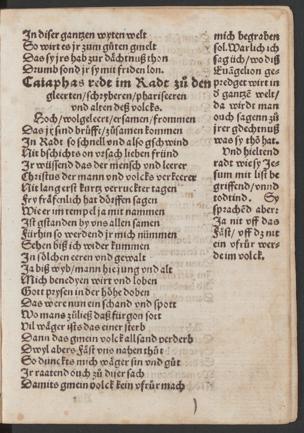 In diser gantzen wyten welt
So wirt es jr zum gůten gmelt
Das sy jrs hab zur dächtnuß thon
Drumb sond jr sy mit friden lon.
Caiaphas redt im Radt zů den
gleerten/schryberen/phariseeren
und alten deß volcks.
Hoch/wolgeleert/ersamen/frommen
Das jr sind brüfft/zůsamen kommen
In Radt so schnell und also gschwind
Nit bschichts on ursach lieben fründ
Ir wüssend das der mensch und leerer
Christus der mann und volcks verkeerer
Nit lang erst kurtz verruckter tagen
Fry fräfenlich hat dörffen sagen
Wie er im tempel ja mit nammen
Ist gstanden by uns allen samen
Fürhin so werdend jr mich nümmen
Sehen biß ich wider kummen
In sölchen eeren und gewalt
Ja biß wyb/mann hie jung und alt
Mich benedyen wirt und loben
Gott prysen in der höhe doben
Das were nun ein schand und spott
Wo mans zůließ daß fürgon sott
Vil wäger ists das einer sterb
Dann das gmein volck allsand verderb
Dwyl abers Fäst uns nahen thůt
So dunckts mich wäger sin und gůt
Ir raatend ouch zů diser sach
Damits gmein volck kein ufrůr mach
mich begraben
sol. Warlich ich
sag üch/wo diß
Euägelion ges
prediget wirt in
d gantzē welt/
da wirdt man
ouch sagenn zů
jrer gdechtnuß
was sy thõ hat.
Und hieltend
radt wie sy Jes
sum mit list be
griffend/unnd
todtind. Sy
sprachēd aber:
Ja nit uff das
Fäst/ uff dz nit
ein ufrůr wer-
de im volck.